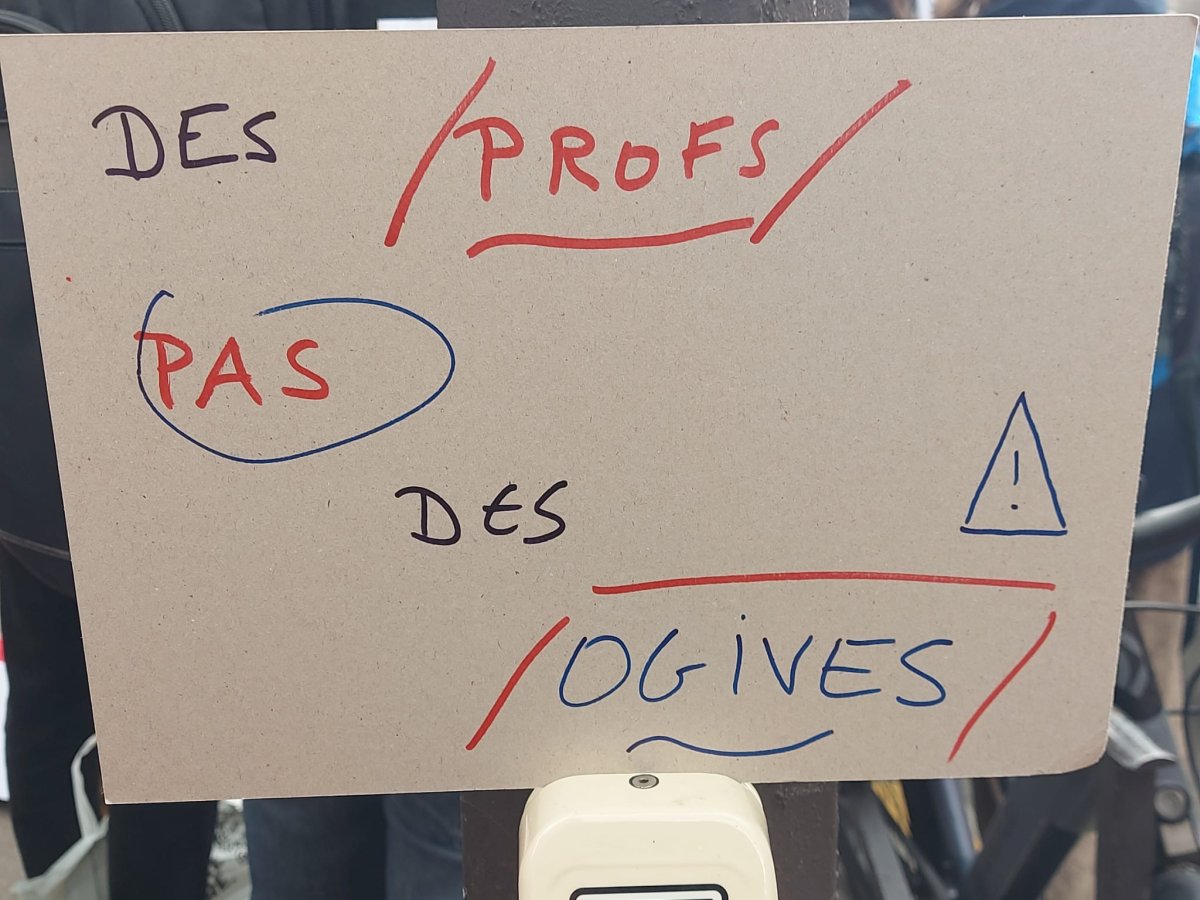 DES /PROFS/
PAS
DES
!
/OGIVES/